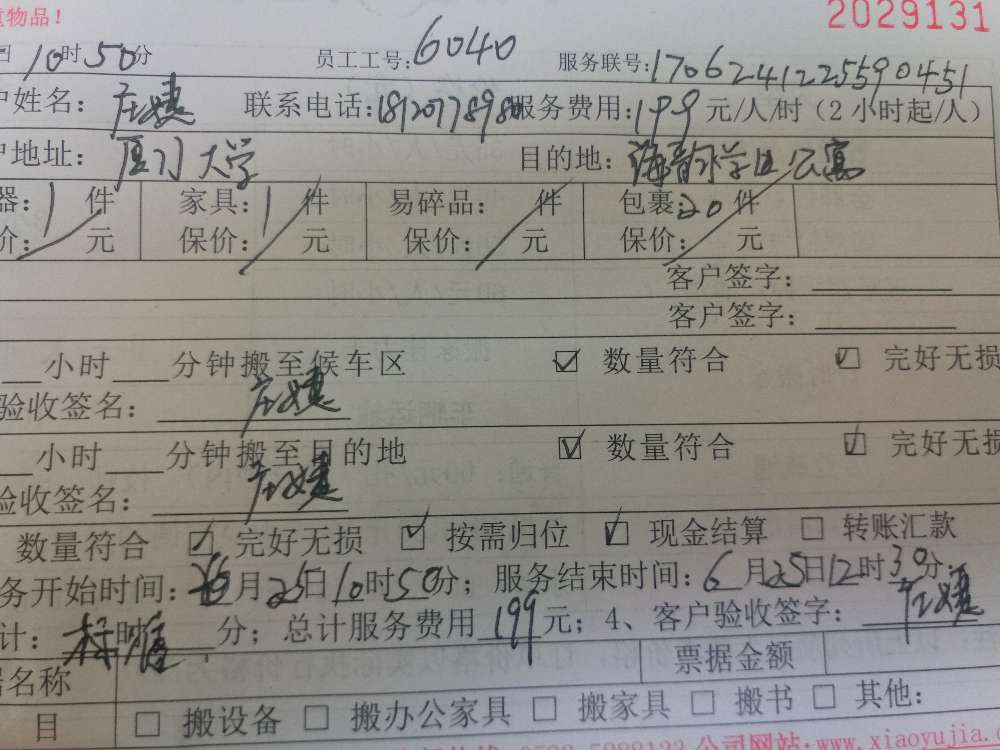 物品！ 2029131
10时50分 员工工号:6040 服务联号:170624122559 0451
户姓名: 庄婕 联系电话:18120778980 服务费用:199元/人/时（2小时起/人）
户地址: 厦门大学 目的地: 海韵学生公寓
器:1件 家具:1件 易碎品: 件 包裹:20件
价: 元 保价: 元 保价: 元 保价: 元
客户签字:
客户签字:
小时 分钟搬至候车区 ☑ 数量符合 ☑ 完好无损
验收签名: 庄婕
小时 分钟搬至目的地 ☑ 数量符合 ☑ 完好无损
验收签名: 庄婕
数量符合 ☑ 完好无损 ☑ 按需归位 ☑ 现金结算 □ 转账汇款
务开始时间:6月25日10时50分；服务结束时间:6月25日12时30分；
计: 时 分；总计服务费用199元；4、客户验收签字: 庄婕
据名称 票据金额
目 □ 搬设备 □ 搬办公家具 □ 搬家具 □ 搬书 □ 其他:
公司网站:www.xiaoyujia.